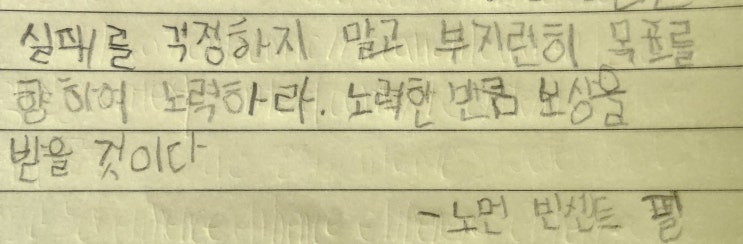 실패를 걱정하지 말고 부지런히 목표를
향하여 노력하라. 노력한 만큼 보상을
받을 것이다
- 노먼 빈센트 필